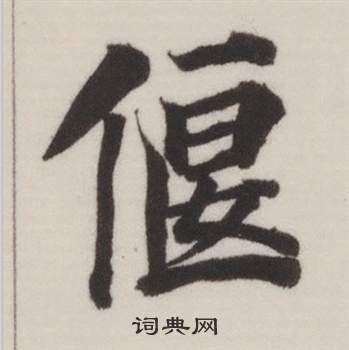 偃
词典网